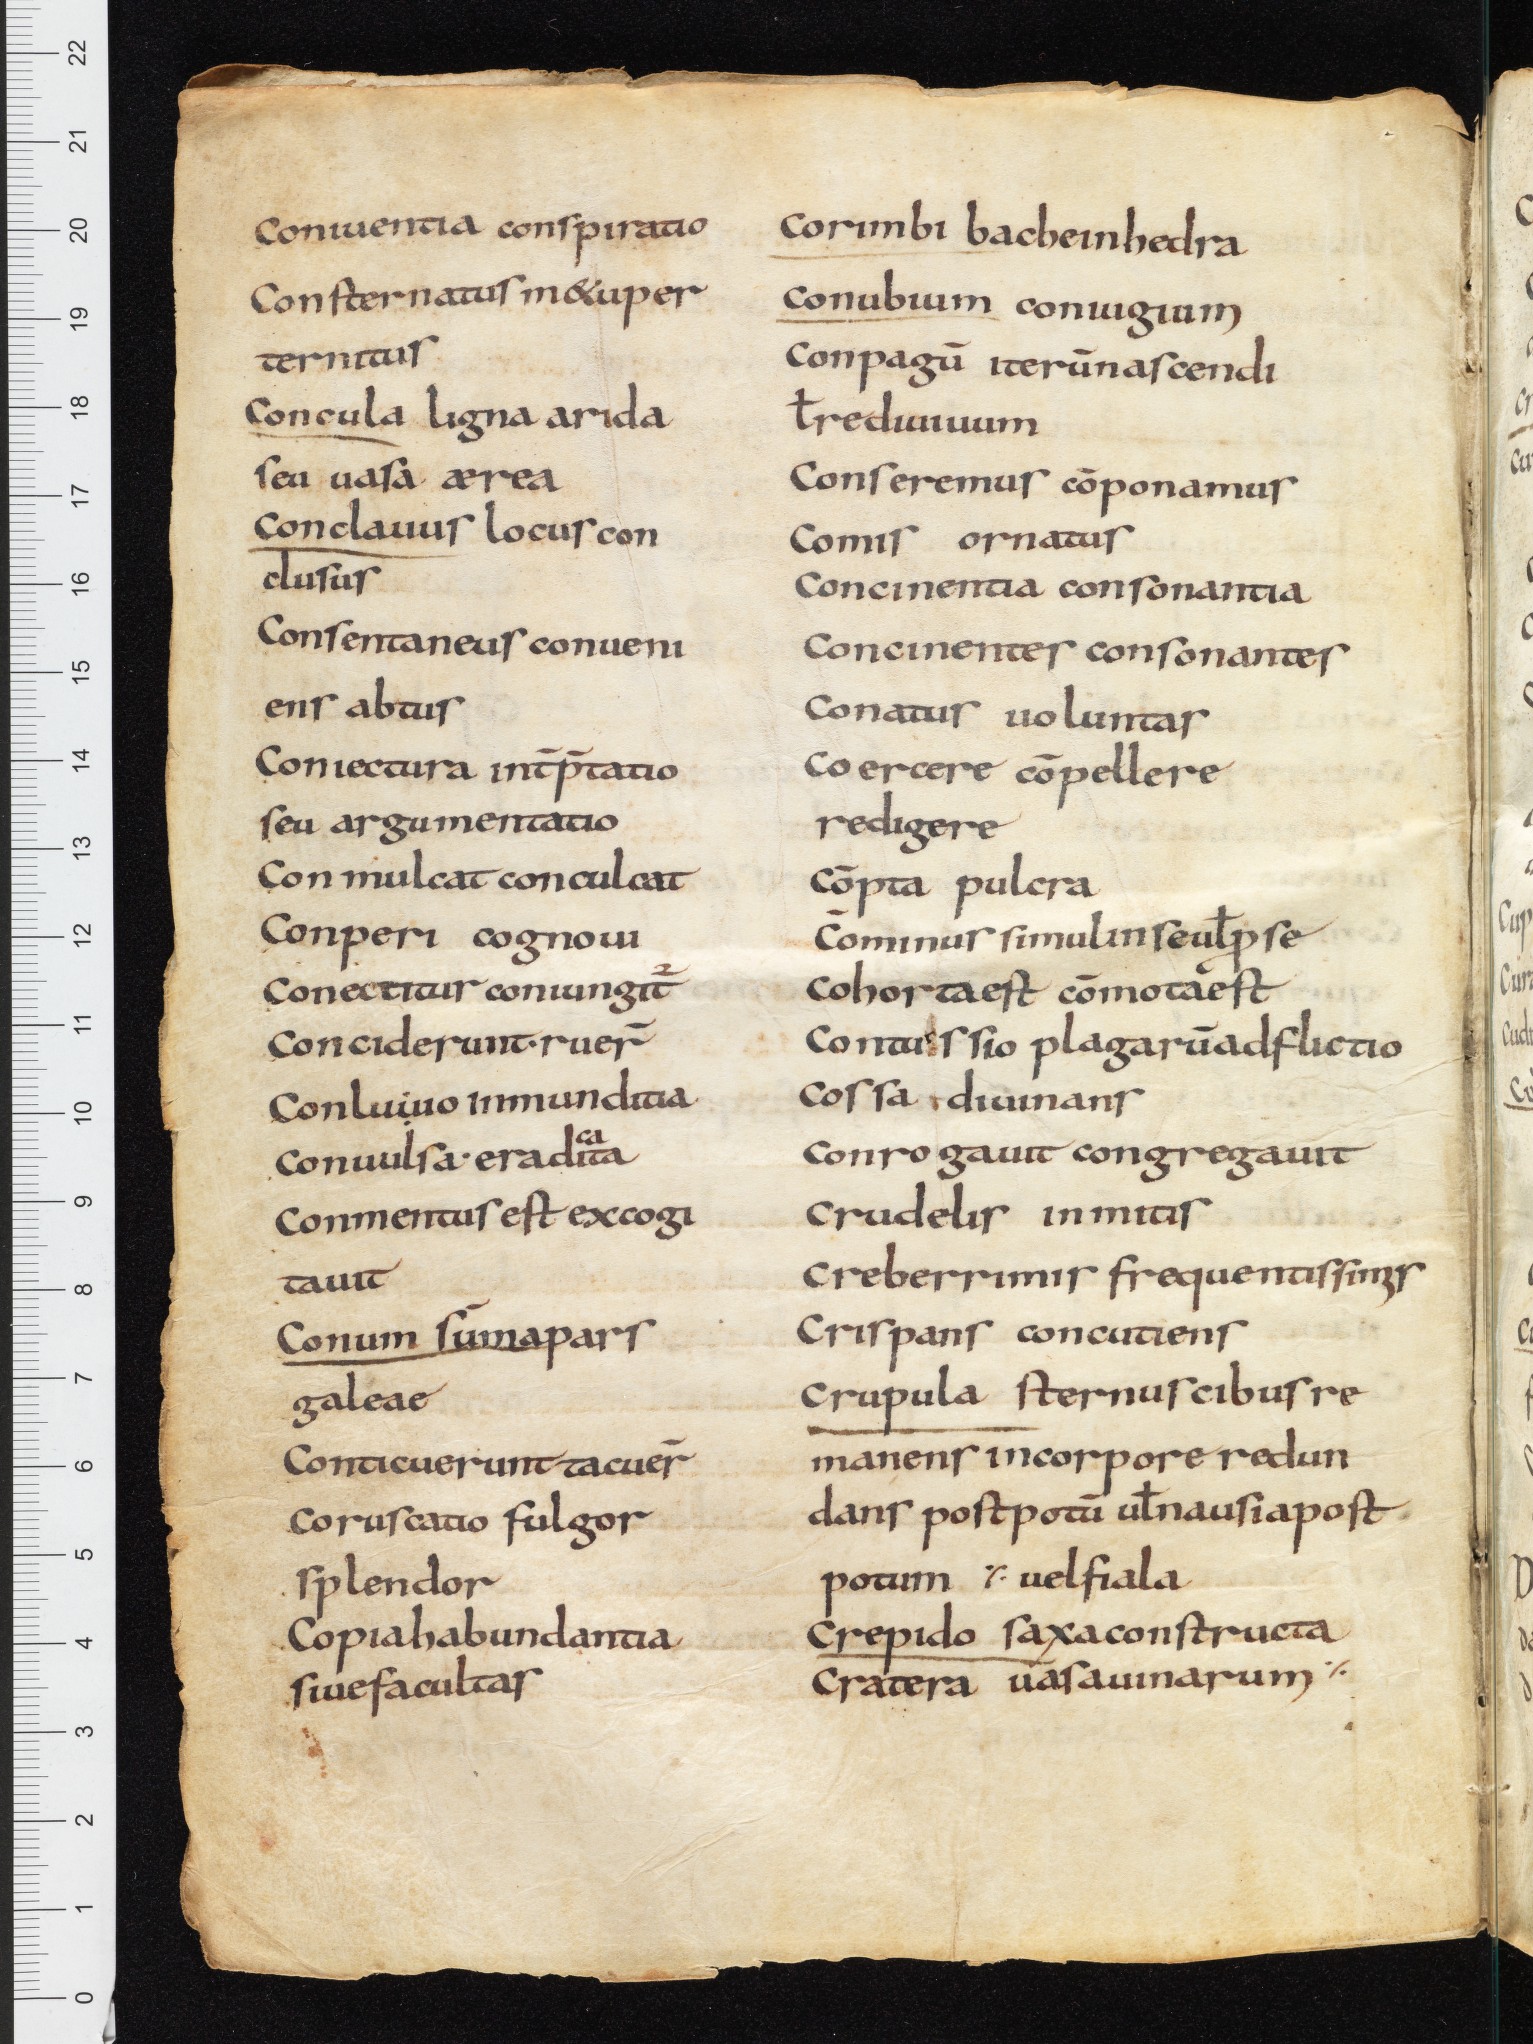 Coniuentia conspiratio
Consternatus in&uper
ternitus
Concula ligna arida
seu uasa aerea
Conclauus locus con
clusus
Consentaneus conueni
ens abtus
Coniectura int̄p̄tatio
seu argumentatio
Conmulcat conculcat
Conperi cognoui
Conectitur coniungit᷒
Conciderunt· ruer̄
Conluuio inmunditia
Conuulsa· eradicata
Conmentus est excogi
tauit
Conum sūma pars
galeae
Conticuerunt tacuer̄
Coruscatio fulgor
splendor
Copia habundantia
siue facultas
Corimbi bache in hedra
Conubium coniugium
Conpagū iterū nascendi
ł rediuiuum
Conseremus cōponamus
Comis ornatus
Concinentia consonantia
Concinentes consonantes
Conatus uoluntas
Coercere cōpellere
redigere
Cōpta pulcra
Cōminus simul in se uł p se
Cohorta est cōmota est
Contussio plagarū adflictio
Cossa diuinans
Conrogauit congregauit
Crudelis inmitis
Creberrimis frequentissimis
Crispans concutiens
Crupula sternus cibus re
manens in corpore redun
dans post potū uł nausia post
potum ⁒ uel fiala
Crepido saxa constructa
Cratera uasa uinarum ⁒